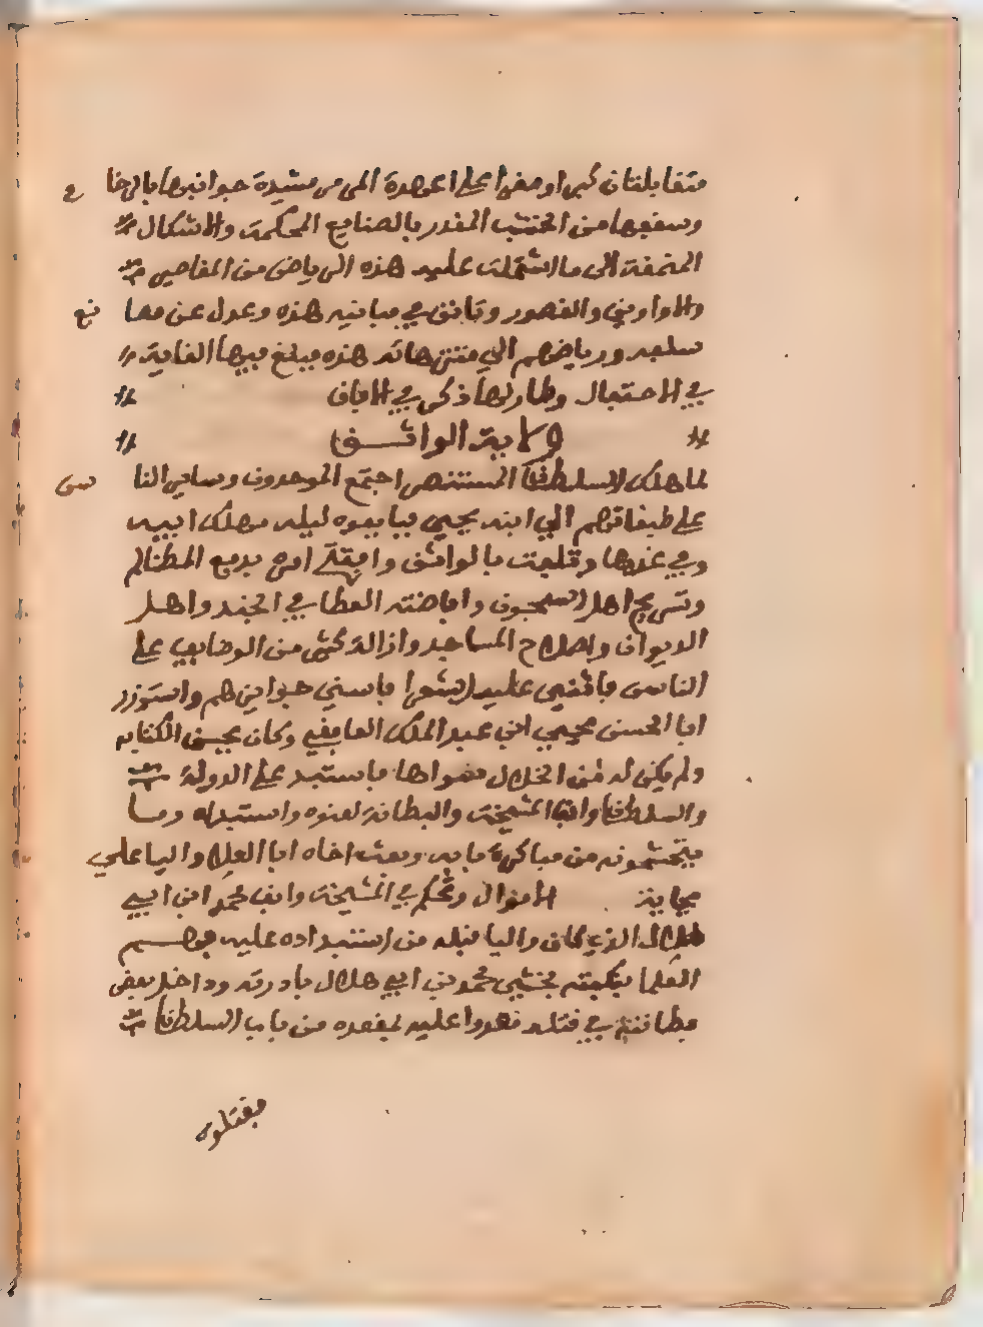 متقابلتان كبرا وصغرا على اعمدة المرمر مشيدة جوانبها بالرخا م
وسقفها من الخشب المقدر بالصنايع المحكمة والاشكال
المنمقة الى ما اشتملت عليه هذه الرياض من المقاصير
والاواوين والقصور وتانق في مبانيه هذه وعدل عن مصا نع
سلفه ورياضهم الى متنزهاته هذه فبلغ فيها الغاية
في الاحتفال وطار لها ذكر في الافاق
ولاية الواثق
لما هلك السلطان المستنصر اجتمع الموحدون وساير النا س
على طبقاتهم الى ابنه يحيى فبايعوه ليلة مهلك ابيه
وفي غدها وتلقب بالواثق وافتتح امره برفع المظالم
وتسريح اهل السجون وافاضة العطا في الجند واهل
الديوان واصلاح المساجد وازالة كثير من الوضايف على
الناس فاثنى عليه الشعرا فاسنى جوايزهم واستوزر
ابا الحسن يحيى ابن عبد الملك الغافقي وكان يحسن الكتابة
ولم يكن له من الخلال سواها فاستبد على الدولة
والسلطان وانف المشيخة والبطانة لعنوه واستبداده وما
يتجشمونه من مباكرة بابه وبعث اخاه ابا العلا واليا على
بجاية الاموال وتحكم في المشيخة وانف محمد ابن ابي
هلال الذي كان واليا قبله من استبداده عليه فوهم
العلا بنكبته فخشي محمد بن ابي هلال بادرته وداخل بعض
بطانته في قتله فعدوا عليه لمقعده من باب السلطان
فقتلوه